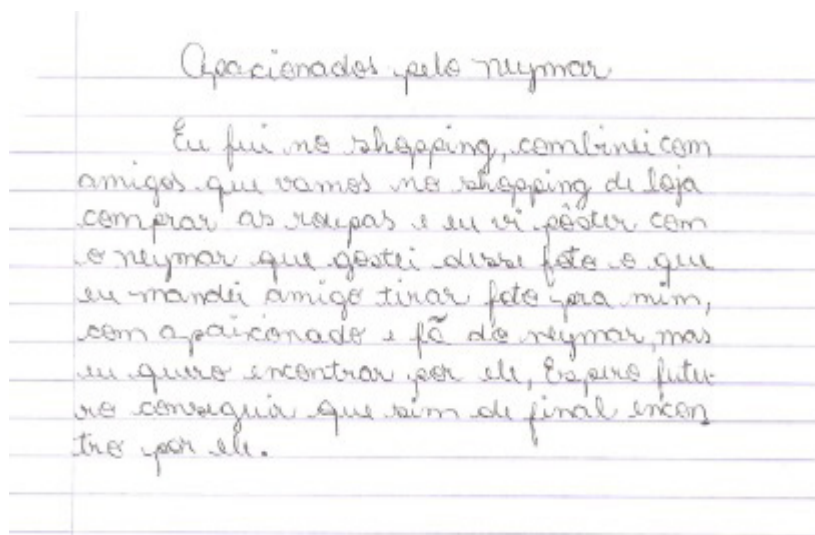 Apacionados pelo neymar
Eu fui no shopping, combinei com
amigos que vamos no shopping de loja
comprar as roupas e eu vi pôster com
o neymar que gostei desse foto o que
eu mandei amigo tirar foto pra mim,
com apaixonado e fã do neymar, mas
eu quero encontrar por ele, Espero futu-
ro conseguir que sim de final encon
tro por ele.